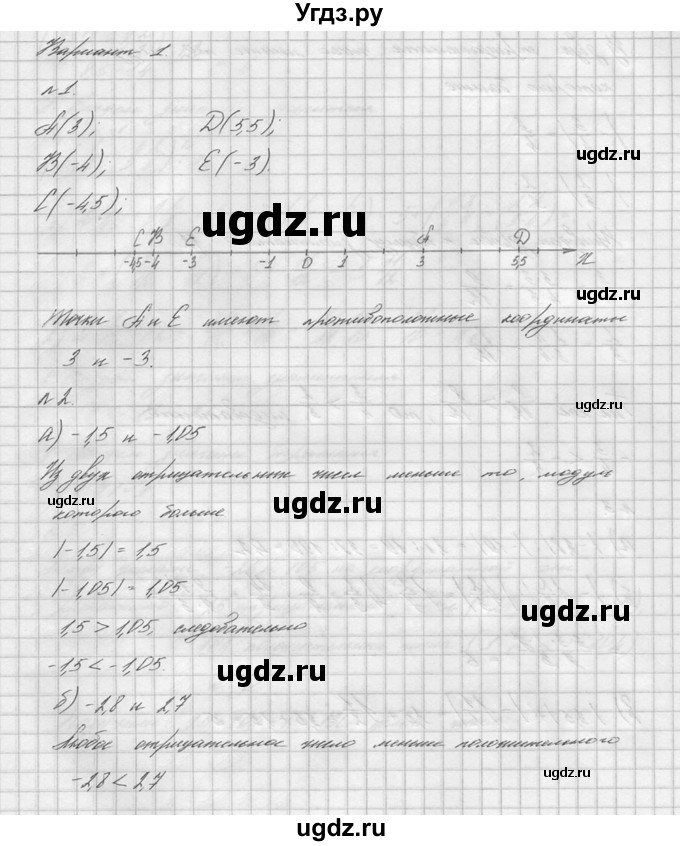 Угдз.ру
Вариант 1.
№1.
A(3);   D(5,5);
B(-4);   E(-3).
C(-4,5);
ugdz.ru
ugdz.ru
C B E A D
-4,5 -4 -3 -1 0 1 3 5,5 X
ugdz.ru
Точки A и E имеют противоположные координаты
3 и -3.
№2.
ugdz.ru
а) -1,5 и -1,05
Из двух отрицательных чисел меньше то, модуль
ugdz.ru
которого больше
ugdz.ru
|-1,5| = 1,5
|-1,05| = 1,05
ugdz.ru
1,5 > 1,05, следовательно
-1,5 < -1,05.
ugdz.ru
б) -2,8 и 2,7
Любое отрицательное число меньше положительного
-2,8 < 2,7
ugdz.ru
ugdz.ru